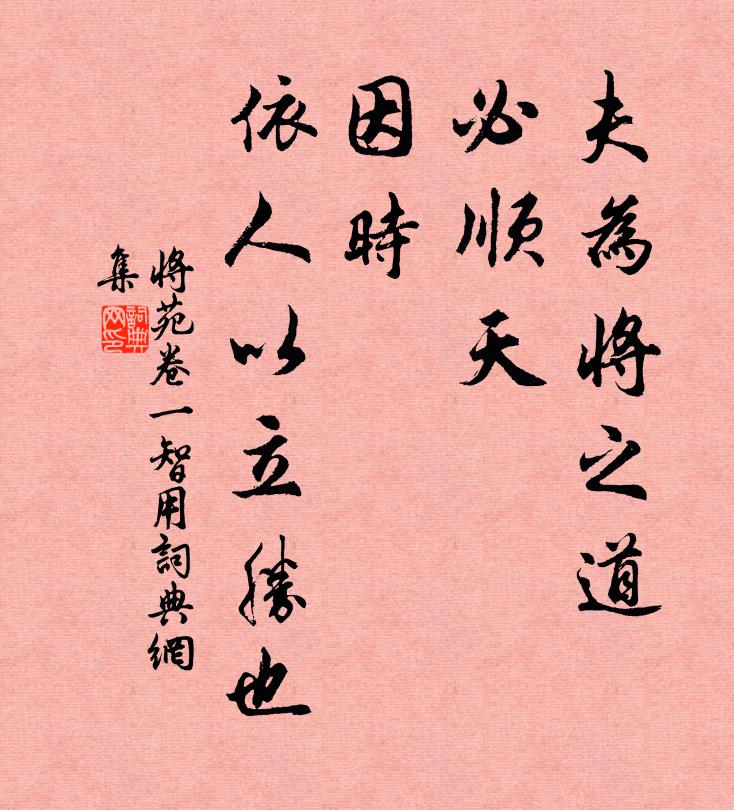 夫為将之道
必順天
因時
依人以立勝也
将苑卷一智用詞典網
集
詞典
网印